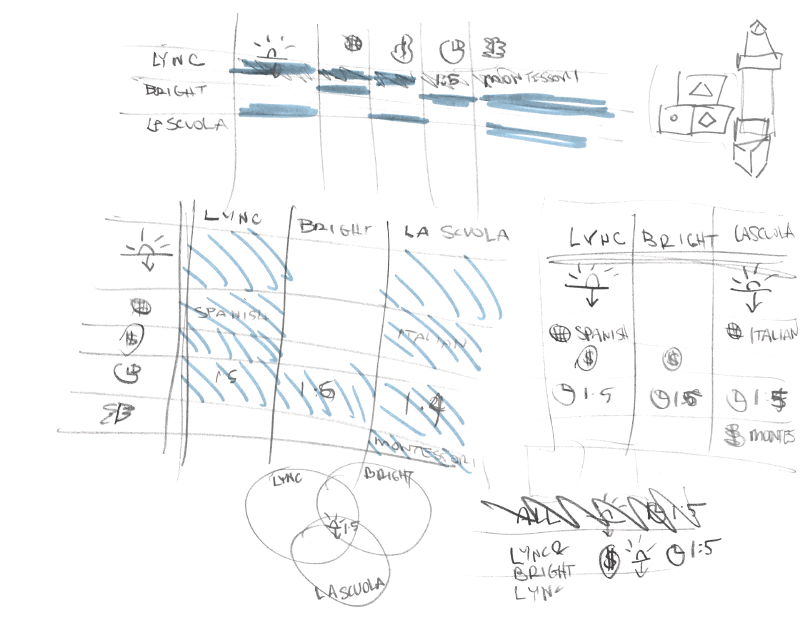 LYNC
1:5 MONTESSORI
BRIGHT
LA SCUOLA
LYNC BRIGHT LA SCUOLA
SPANISH ITALIAN
$
1:5 1:5 1:4
MONTESSORI
LYNC BRIGHT LASCUOLA
SPANISH ITALIAN
$ $
1:5 1:5 1:5
MONTES
LYNC BRIGHT
1:5
LASCUOLA
ALL 1:5
LYNC &
BRIGHT $ 1:5
LYNC